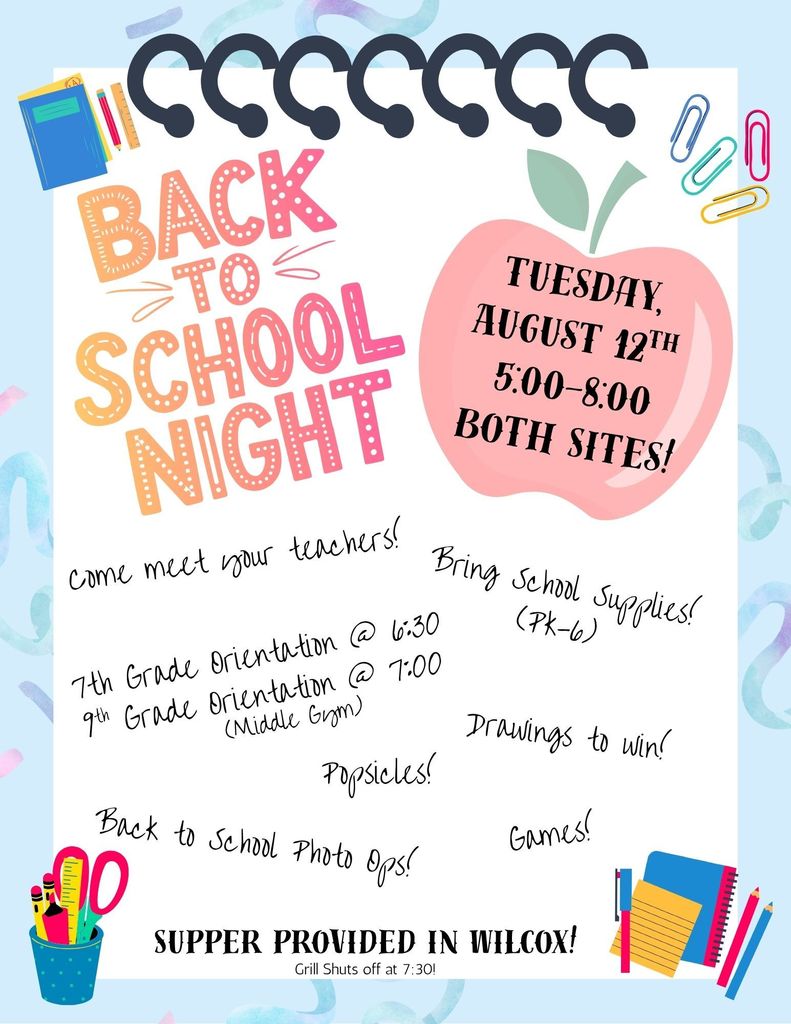 BACK
TO
SCHOOL
NIGHT
TUESDAY,
AUGUST 12TH
5:00-8:00
BOTH SITES!
Come meet your teachers!
Bring School Supplies!
(PK-6)
7th Grade Orientation @ 6:30
9th Grade Orientation @ 7:00
(Middle Gym)
Drawings to win!
Popsicles!
Back to School Photo Ops!
Games!
SUPPER PROVIDED IN WILCOX!
Grill Shuts off at 7:30!